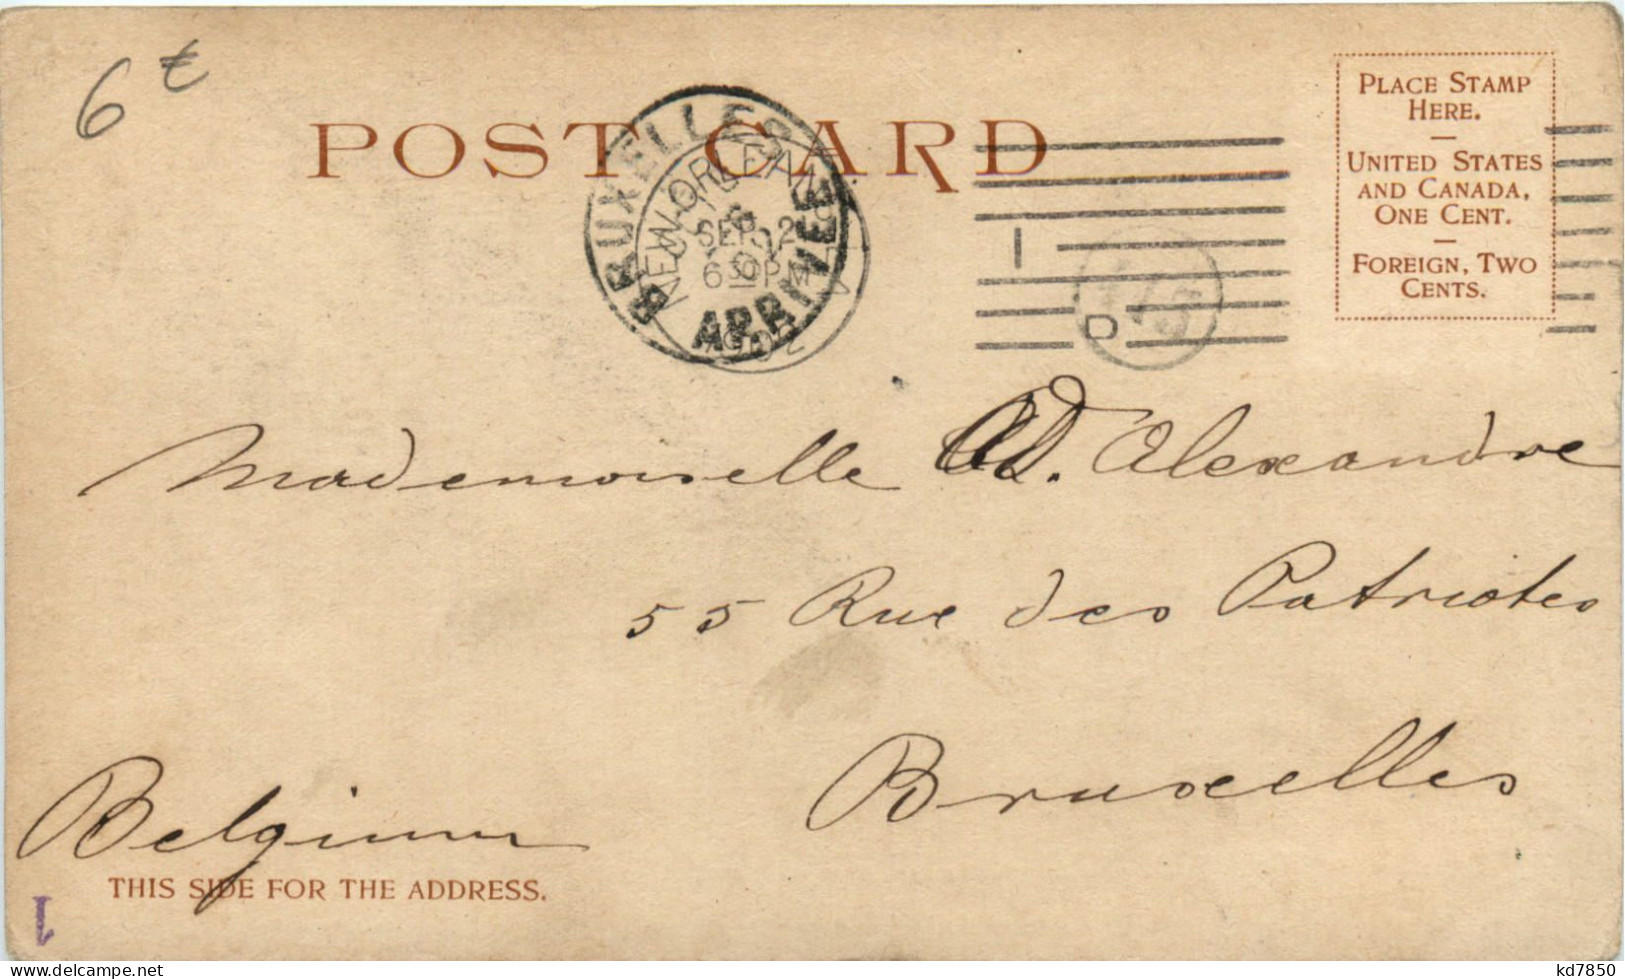 6 €
POST CARD
PLACE STAMP
HERE.
—
UNITED STATES
AND CANADA,
ONE CENT.
—
FOREIGN, TWO
CENTS.
BRUXELLES
ARRIVEE
NEW ORLEANS
SEP 2
6 30 PM
1902
1
D
Mademoiselle AD. Alexandre
55 Rue des Patriotes
Bruxelles
Belgium
THIS SIDE FOR THE ADDRESS.
1
www.delcampe.net
kd7850